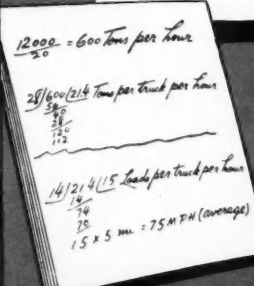 12000 = 600 Tons per hour
20
28)600(21.4 Tons per truck per hour
56
40
28
120
112
14)21 4(15 Loads per truck per hour
14
74
75
1 5 x 5 mi = 75 MPH (average)